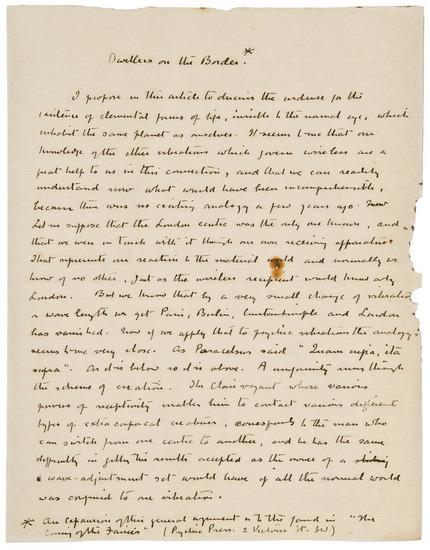 Dwellers on the Border.*
I propose in this article to discuss the evidence for the
existence of elemental forms of life, invisible to the normal eye, which
inhabit the same planet as ourselves. It seems to me that our
knowledge of the ether vibrations which govern wireless are a
great help to us in this connection, and that we can readily
understand now what would have been incomprehensible,
because there was no existing analogy a few years ago. Now
Let us suppose that the London centre was the only one known, and
that we were in touch with it through our own receiving apparatus.
That represents our reaction to the material world and normally we
know of no other, Just as the wireless recipient would know only
London. But we know that by a very small change of vibration
or wave length we get Paris, Berlin, Constantinople and London
has vanished. Now if we apply that to psychic vibrations the analogy
seems to me very close. As Paracelsus said "Quam infra, ita
supra". As it is below so it is above. A uniformity runs through
the scheme of creation. The Clairvoyant whose various
powers of receptivity enables him to contact various different
types of extra corporeal creatures, corresponds to the man who
can switch from one centre to another, and he has the same
difficulty in getting his results accepted as the owner of a
wave-adjustment set would have if all the normal world
was confined to one vibration.
* An expansion of this general argument is to be found in "The
Coming of the Fairies" (Psychic Press. 2 Victoria St. SW)